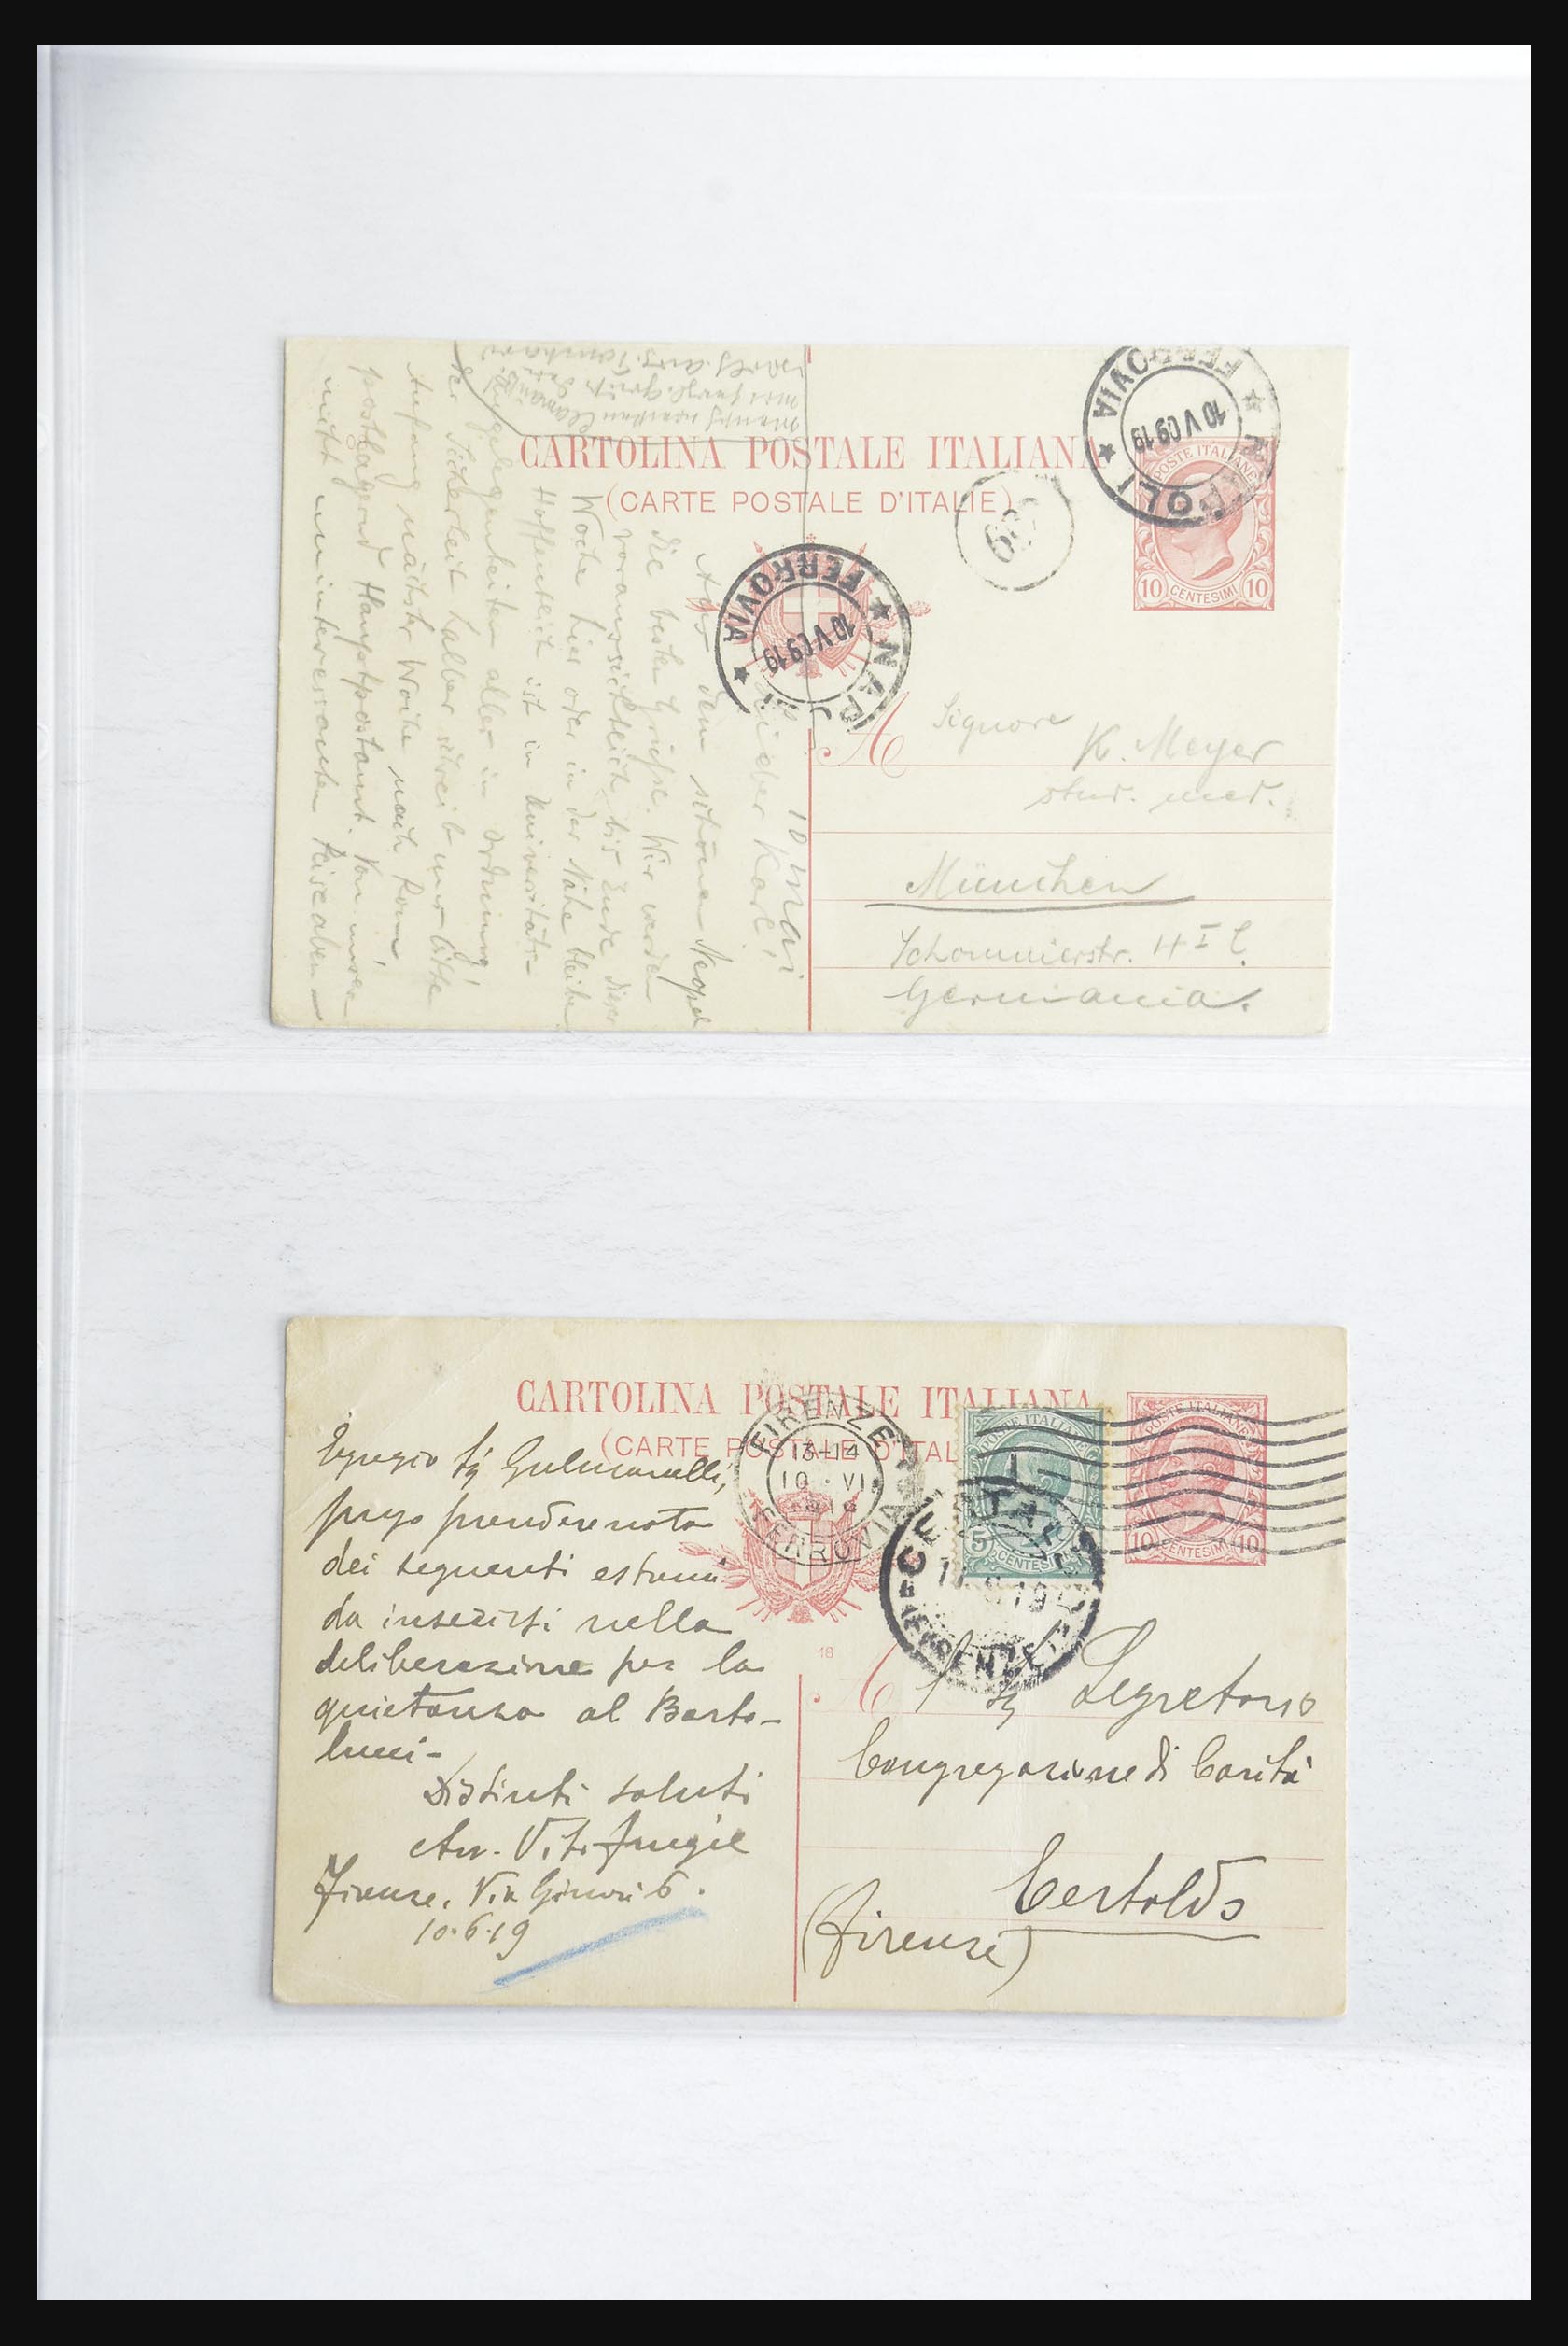 CARTOLINA POSTALE ITALIANA
(CARTE POSTALE D'ITALIE)
POSTE ITALIANE
10 CENTESIMI 10
NAPOLI
FERROVIA
10 V 09 19
NAPOLI
FERROVIA
10 V 09 19
A Signore
K. Meyer
stud. med.
München
Germania.
10 Mai
Lieber Karl!
Aus dem schönen Neapel
die besten Grüsse. Wir werden
voraussichtlich bis Ende dieser
Woche hier oder in der Nähe bleiben
Hoffentlich ist in Universitäts-
angelegenheiten alles in Ordnung!
der Sicherheit halber schreib uns bitte
Anfang nächster Woche nach Rom,
postlagernd Hauptpostamt. Von unser
nicht uninteressanten Reise oben
CARTOLINA POSTALE ITALIANA
(CARTE POSTALE D'ITAL
POSTE ITALIANE
5 CENTESIMI
POSTE ITALIANE
10 CENTESIMI 10
FIRENZE
13-14
10 · VI
FERROVIA
18
Egregio Sig
prego prendere nota
dei seguenti estremi
da inserirsi nella
deliberazione per la
quietanza al Barto-
lucci-
Distinti saluti
Firenze, Via Ginori 6.
10.6.19
A l Sig Segretario
Congregazione di Carità
Certaldo
(Firenze)